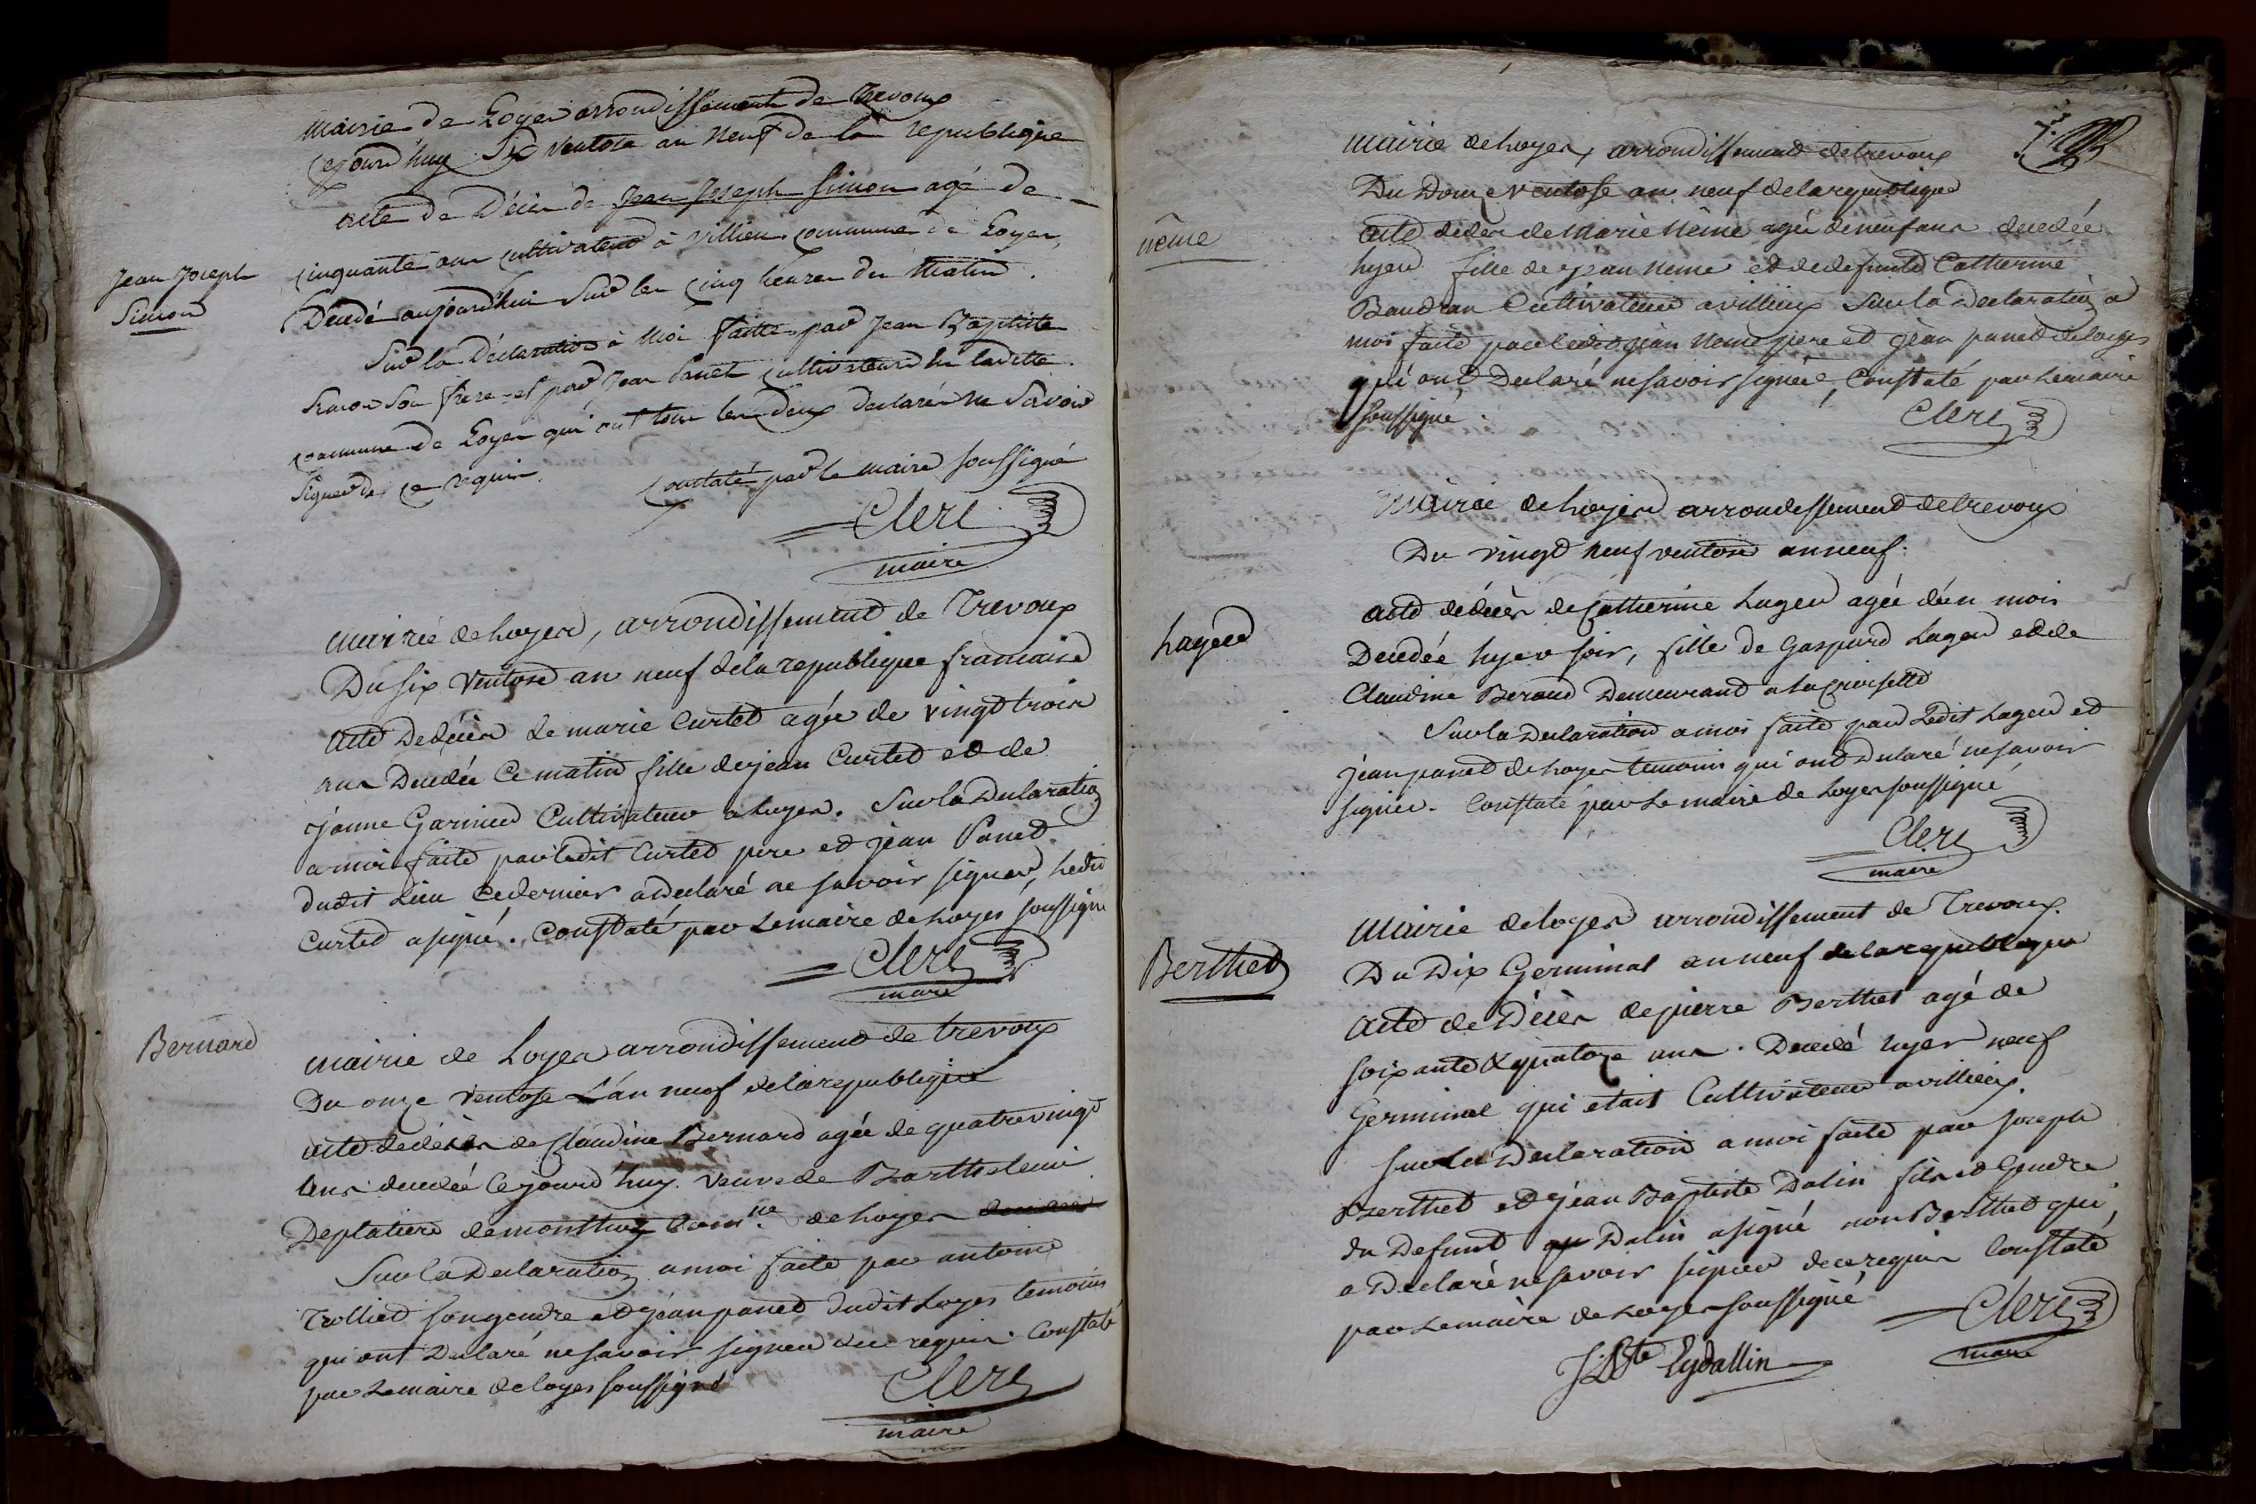 Mairie de Loyes arrondissement de Trevoux
Cejourd'huy Six ventose an neuf de la republique
Acte de Décès de Jean Joseph Simon agé de
Jean Joseph
Simon
Cinquante ans cultivateur à Villieu commune de Loyes,
Décédé aujourd'hui Sur les Cinq heures du Matin.
Sur la Déclaration à Moi faitte par Jean Baptiste
Simon Son frere et par Jean Panet cultivateurs de laditte
commune de Loyes qui ont tous les deux déclarés ne Savoir
Signer de ce requis. Constaté par le maire soussigné
Clerc
maire
Mairie de Loyes, arrondissement de Trevoux
Du six ventose an neuf de la republique francaise
Acte de décès de marie Curtet agée de vingt trois
ans Decedée Ce matin fille de jean Curtet et de
jeanne Garnier Cultivateur a loyes. Sur la Declaration
a moi faite par ledit Curtet pere et jean Panet
dudit Lieu Ce dernier a declaré ne savoir signer, Ledit
Curtet a signé. Constaté par Le maire de Loyes soussigné
Clerc
maire
Bernard
Mairie de Loyes arrondissement de trevoux
Du onze Ventose L'an neuf de la republique
acte de décès de Claudine Bernard agée de quatre vingt
ans decedée Cejourd'huy. veuve de Barthelemi
Deplatiere de monthoz Comne. de Loyes
Sur la Declaration a moi faite par antoine
Trolliet son gendre et jean panet dudit Loyes temoins
qui ont Declaré ne savoir signer de ce requis. Constaté
par Le maire de loyes soussigné
Clerc
maire
Mairie de Loyes, arrondissement de trevoux
Du Douze ventose an neuf de la republique
néme
acte de décès de Marie Néme agée de neuf ans decedée
hyer fille de jean neme et de defunte Catherine
Baudran Cultivateur a villieux Sur la Declaration a
moi faite par ledit jean neme pere et jean panet de loyes
qui ont Declaré ne savoir signer, Constaté par Le maire
soussigné.
Clerc
Mairie de Loyes arrondissement de trevoux
Du vingt neuf ventose an neuf.
Lager
acte de décès de Catherine Lager agée d'un mois
Decedée hyer soir, fille de Gaspard Lager et de
Claudine Beroud Demeurand a la Croisette
Sur la Declaration a moi faite par Ledit Lager et
jean panet de Loyes temoins qui ont Declaré ne savoir
signer. Constaté par Le maire de Loyes soussigné
Clerc
maire
Mairie de loyes arrondissement de Trevoux.
Berthet
Du Dix Germinal an neuf de la republique
acte de Décès de pierre Berthet agé de
soixante & quatoze ans. Decedé hyer neuf
Germinal qui etait Cultivateur a villieux.
Sur la Declaration a moi faite par Joseph
Berthet et jean Baptiste Dalin fils et Gendre
du Defunt Dalin a signé non Berthet qui
a Declaré ne savoir signer de ce requis Constaté
par Le maire de Loyes soussigné
Clerc
maire
J Bte Eydallin